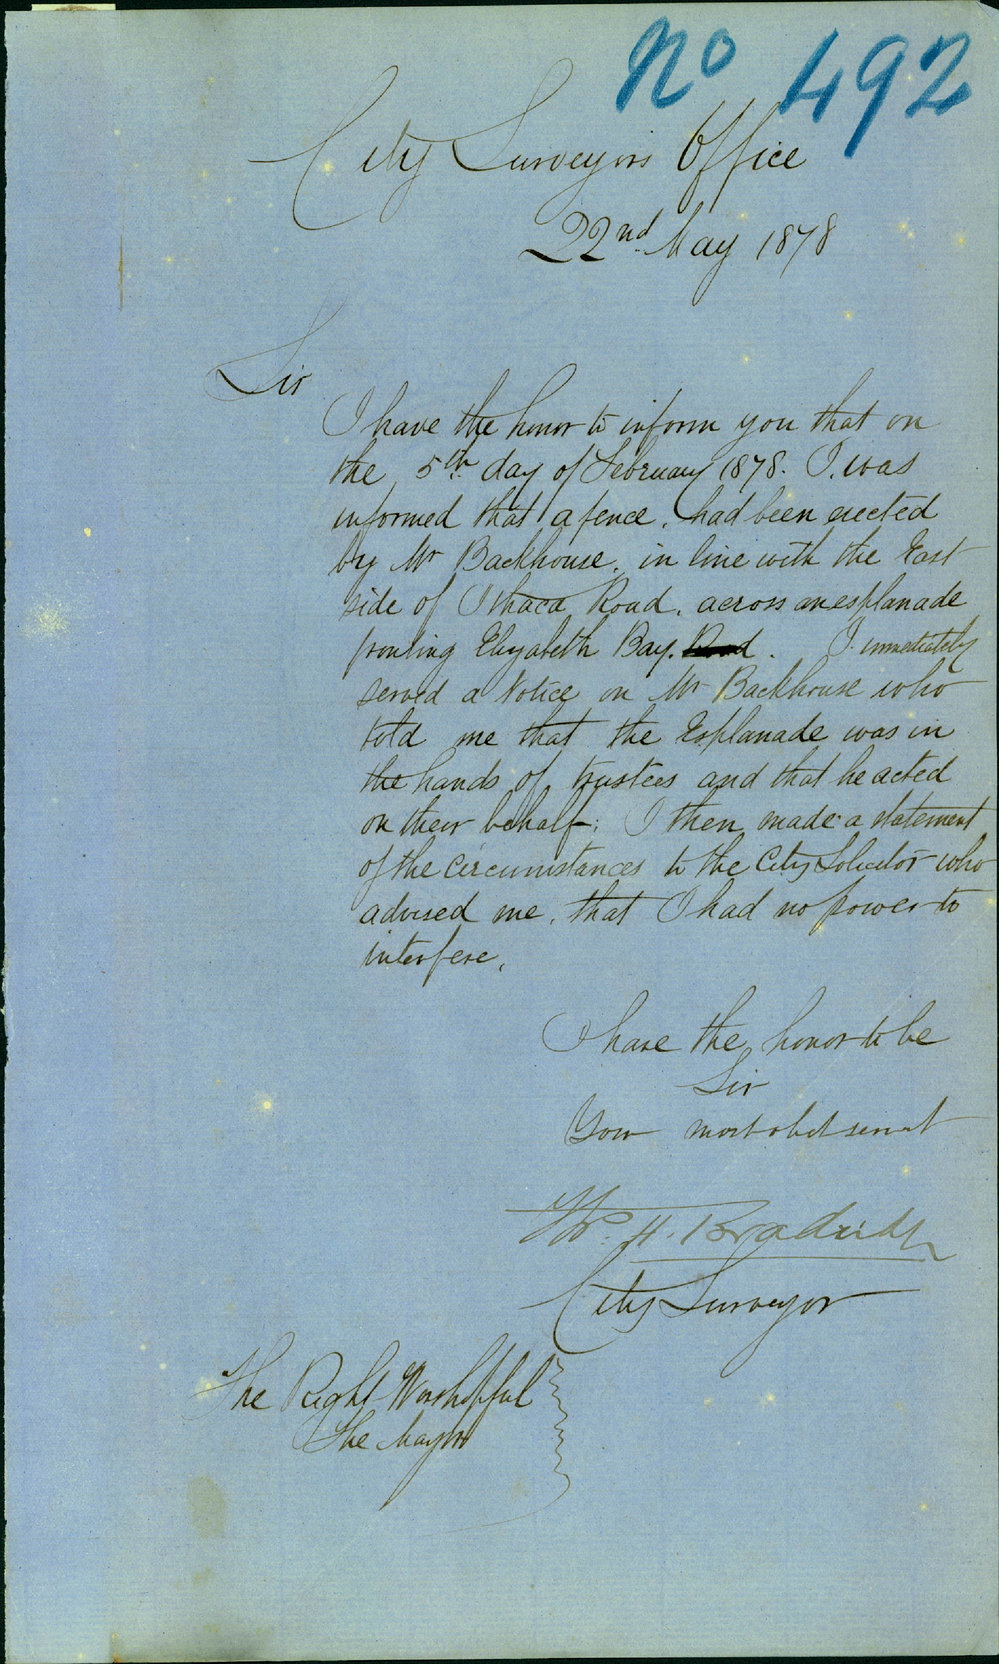 No 492
City Surveyors Office
22nd May 1878
Sir
I have the honor to inform you that on
the 5th day of February 1878. I was
informed that a fence, had been erected
by Mr Backhouse, in line with the East
side of Ithaca Road, across an esplanade
fronting Elizabeth Bay. Road. I immediately
served a Notice on Mr Backhouse who
told me that the Esplanade was in
the hands of trustees and that he acted
on their behalf; I then made a statement
of the circumstances to the City Solicitor who
advised me, that I had no power to
interfere,
I have the honor to be
Sir
Your most obdt servnt
H. Bradridge
City Surveyor
The Right Worshipful
The Mayor